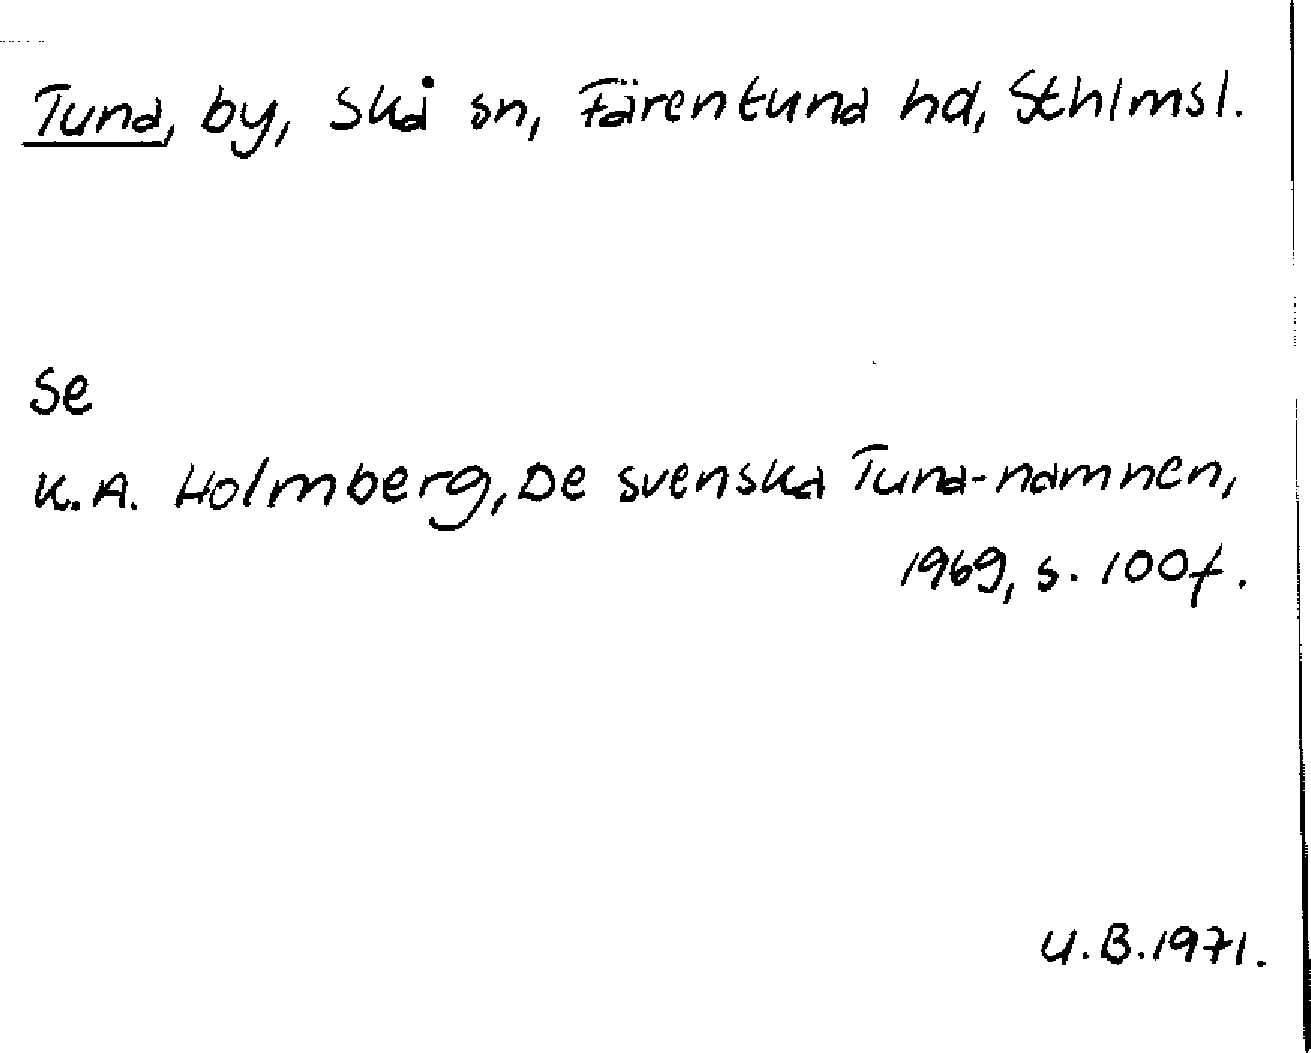 Tuna, by, Skå sn, Färentuna hd, Sthlmsl.
Se
K.A. Holmberg, De svenska Tuna-namnen,
1969, s. 100f.
U.B.1971.